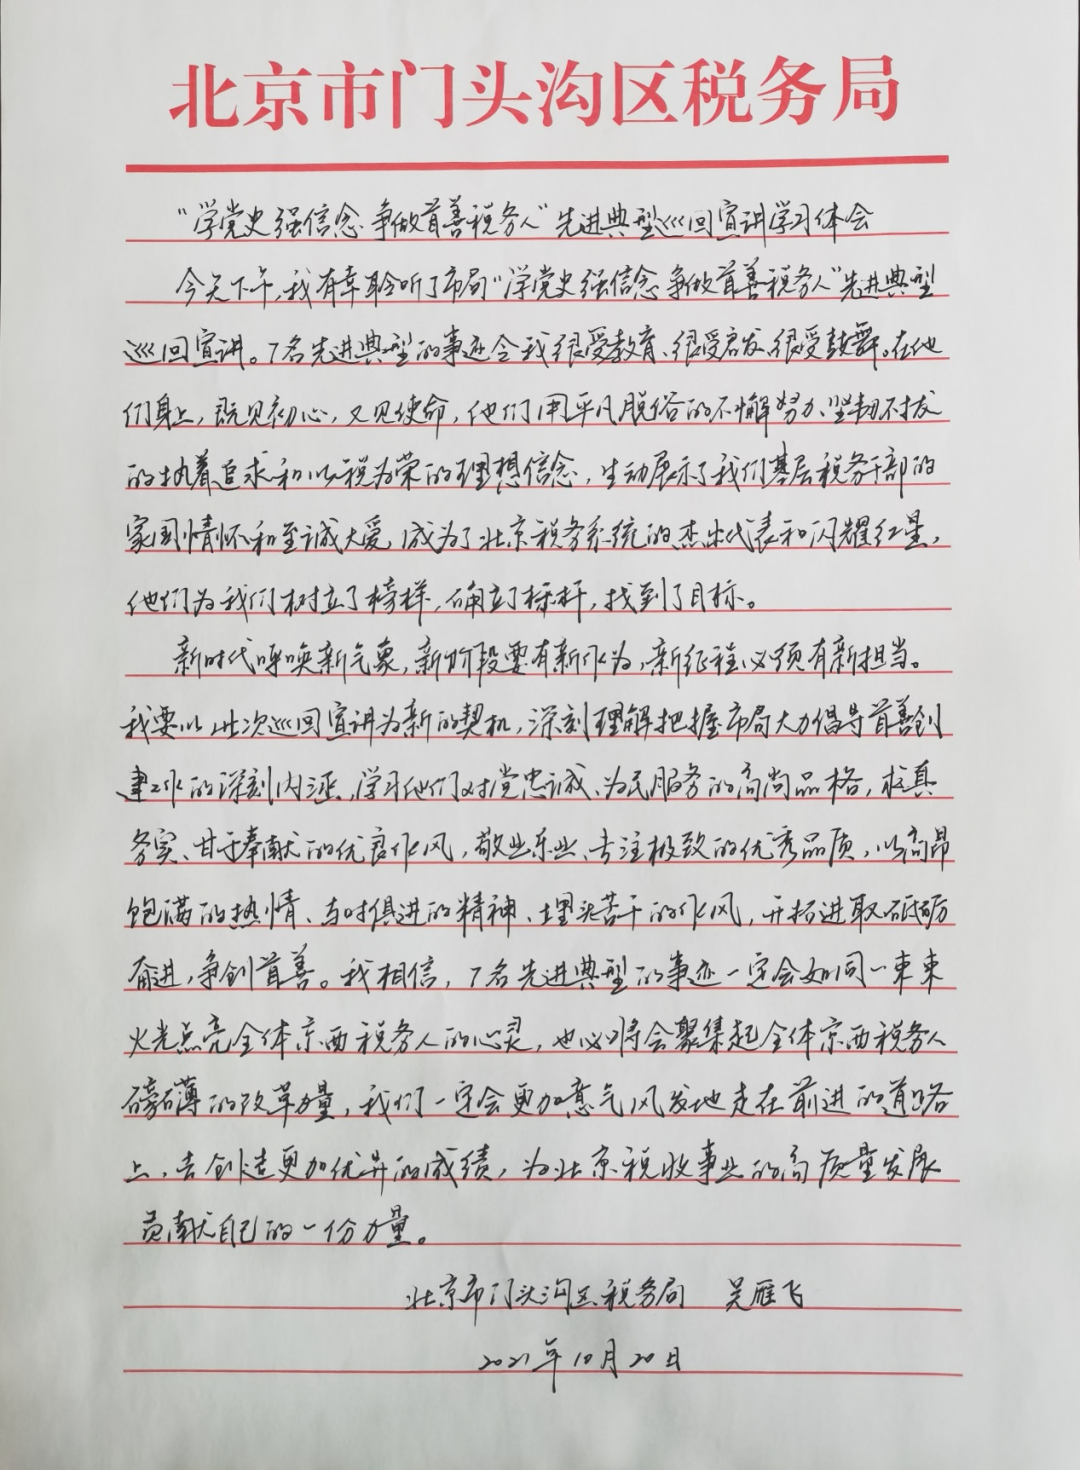 北京市门头沟区税务局
“学党史 强信念 争做首善税务人”先进典型巡回宣讲学习体会
今天下午,我有幸聆听了市局“学党史 强信念 争做首善税务人”先进典型
巡回宣讲。7名先进典型的事迹令我很受教育、很受启发、很受鼓舞。在他
们身上,既见初心,又见使命,他们用平凡脱俗的不懈努力、坚韧不拔
的执着追求和以税为荣的理想信念,生动展示了我们基层税务干部的
家国情怀和至诚大爱,成为了北京税务系统的杰出代表和闪耀红星,
他们为我们树立了榜样,确立了标杆,找到了目标。
新时代呼唤新气象,新阶段要有新作为,新征程必须有新担当。
我要以此次巡回宣讲为新的契机,深刻理解把握市局大力倡导首善创
建工作的深刻内涵,学习他们对党忠诚、为民服务的高尚品格,求真
务实、甘于奉献的优良作风,敬业乐业、专注极致的优秀品质,以高昂
饱满的热情、与时俱进的精神、埋头苦干的作风,开拓进取、砥砺
奋进,争创首善。我相信,7名先进典型的事迹一定会如同一束束
火光点亮全体京西税务人的心灵,也必将会聚集起全体京西税务人
磅礴的改革力量,我们一定会更加意气风发地走在前进的道路
上,去创造更加优异的成绩,为北京税收事业的高质量发展
贡献自己的一份力量。
北京市门头沟区税务局 吴雁飞
2021年10月20日